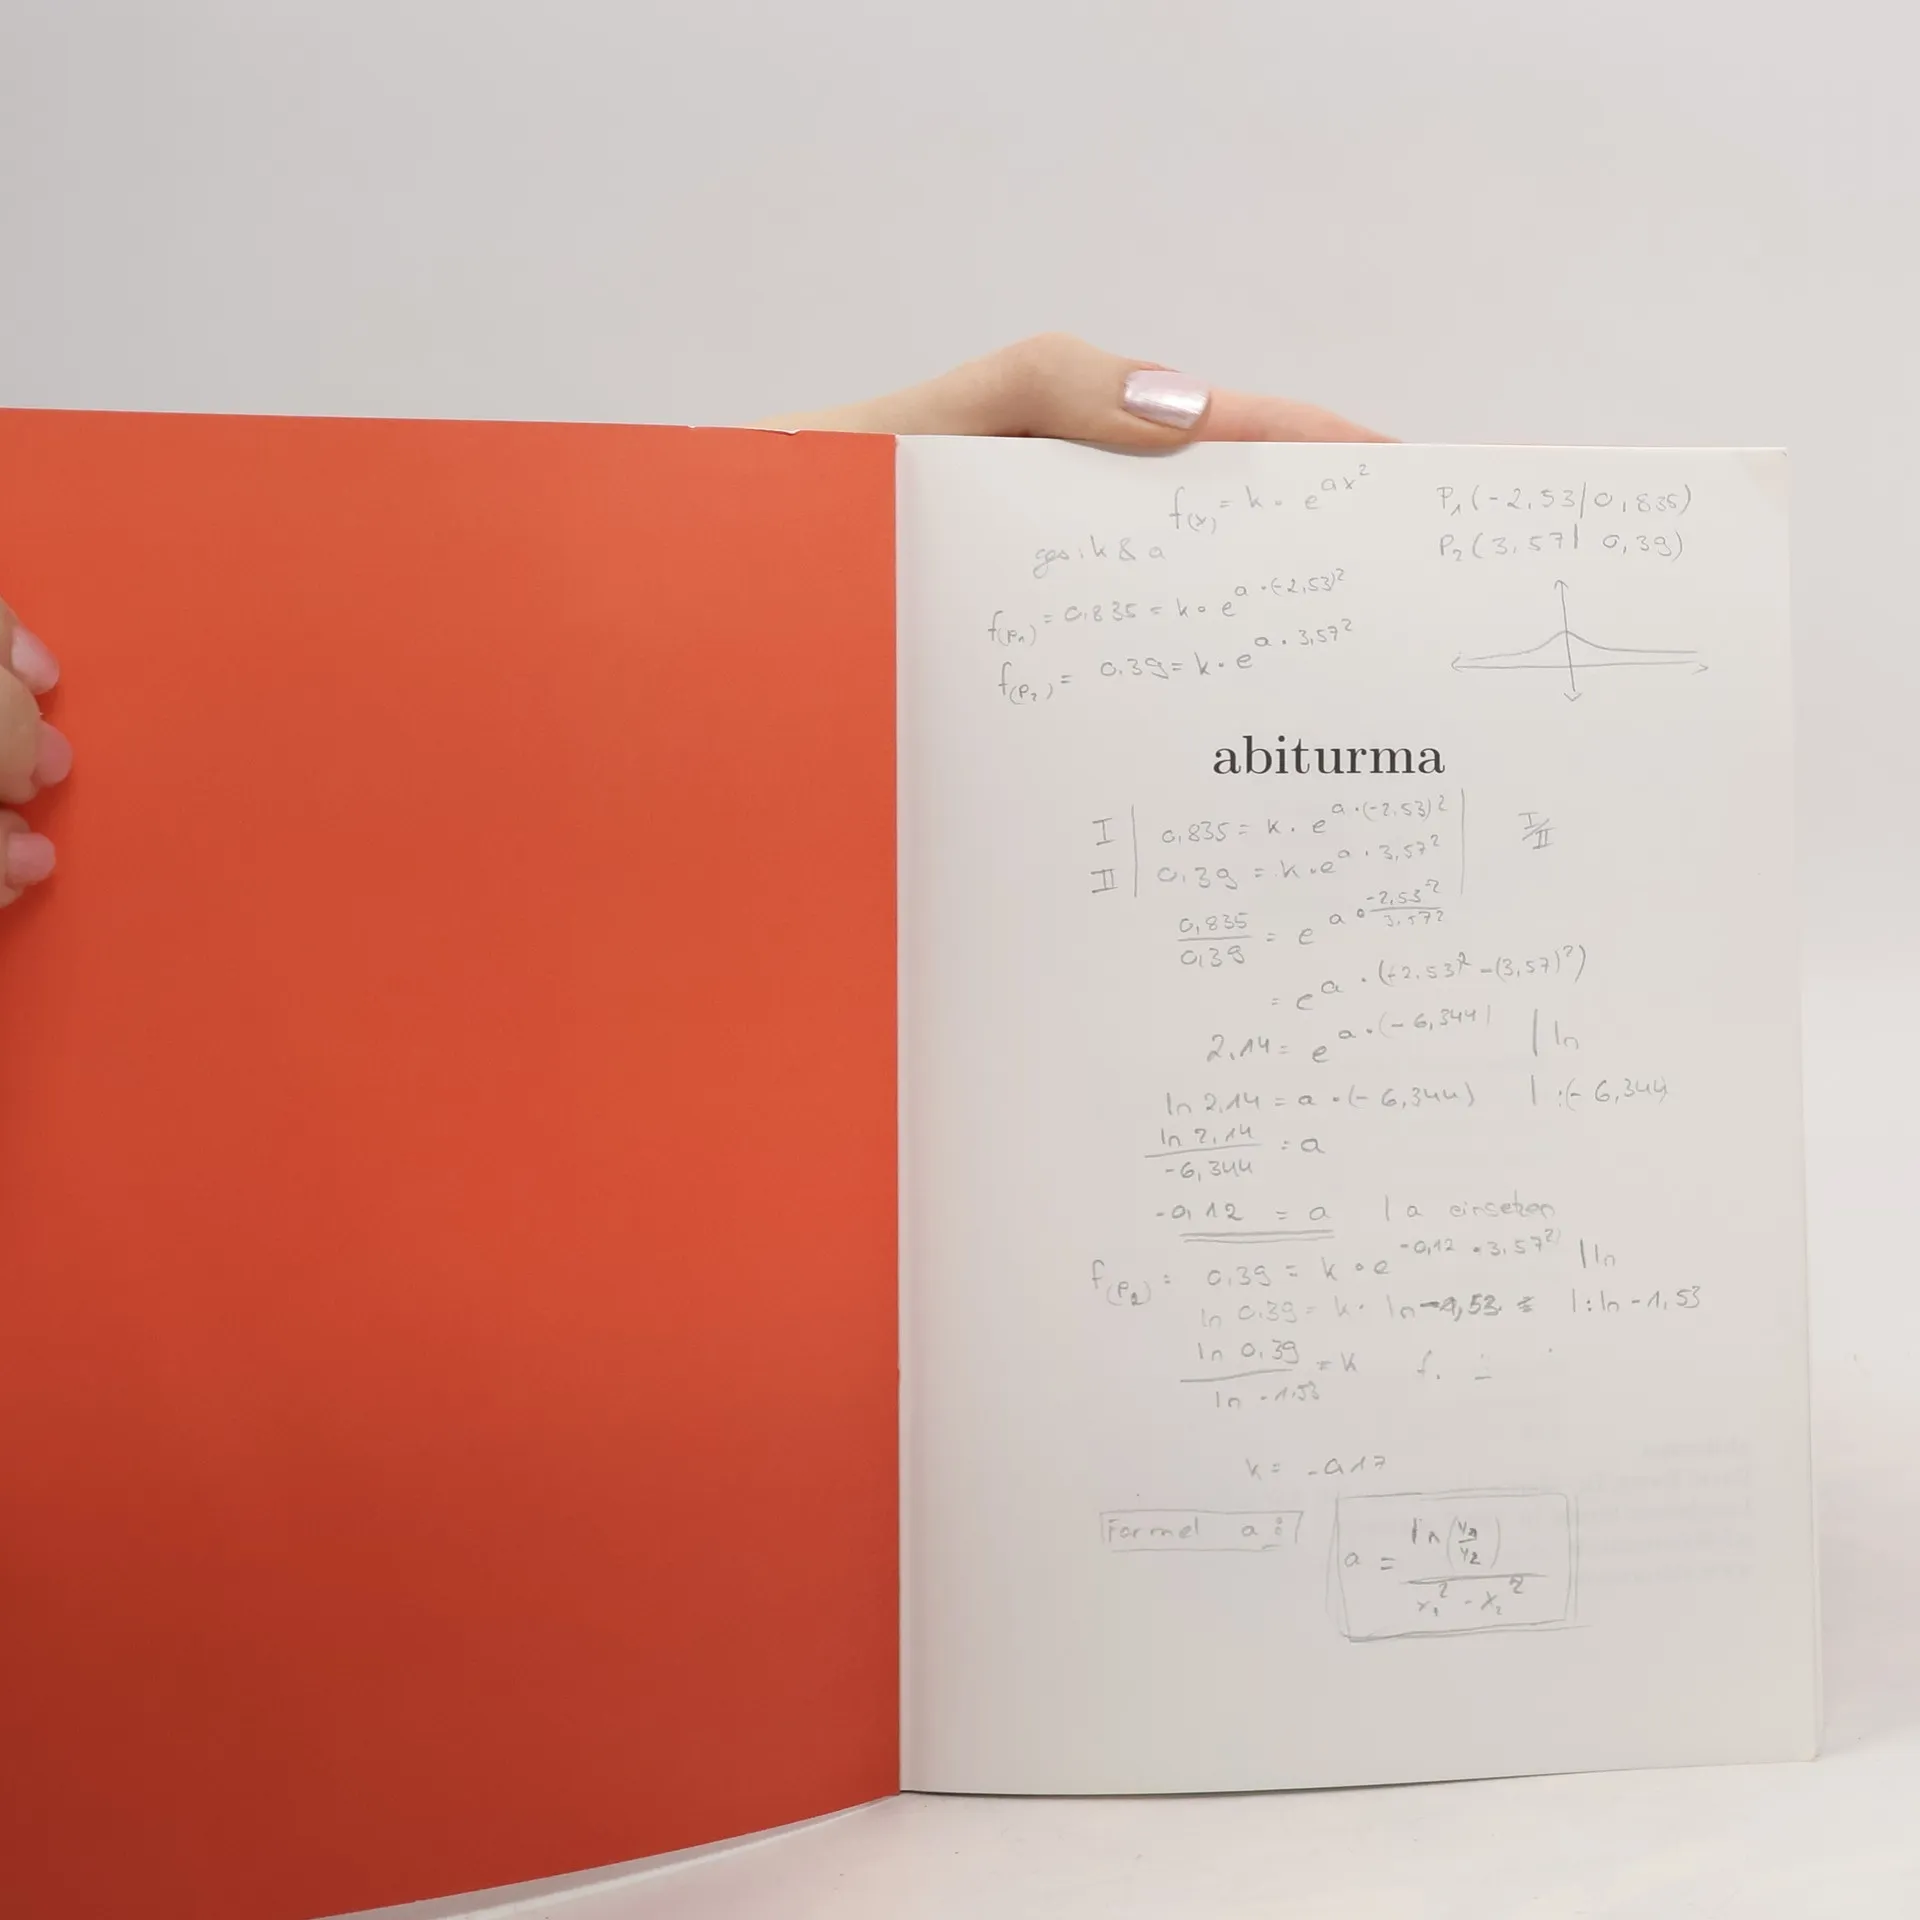 f(x) = k · e^ax²
P₁(-2,53/0,835)
ges: k & a
P₂(3,57| 0,39)
f(P₁) = 0,835 = k · e^a·(-2,53)²
f(P₂) = 0,39 = k · e^a·3,57²
abiturma
I | 0,835 = k · e^a·(-2,53)² | I/II
II | 0,39 = k · e^a·3,57² |
0,835/0,39 = e^a·-2,53²/3,57²
= e^a·(-2,53²-(3,57)²)
2,14 = e^a·(-6,344) | ln
ln 2,14 = a · (-6,344) | :(-6,344)
ln 2,14/-6,344 = a
-0,12 = a | a einsetzen
f(P₂) = 0,39 = k · e^-0,12·3,57² | ln
ln 0,39 = k · ln -1,53 | : ln -1,53
ln 0,39/ln -1,53 = k
k = -0,17
Formel a:
a = ln(y₁/y₂)/x₁² - x₂²